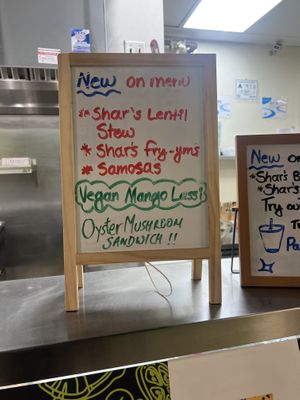 New on menu
* Shar's Lentil
Stew
* Shar's fry-yms
* Samosas
Vegan Mango Lassi
Oyster Mushroom
Sandwich !!
New on
*Shar's B
*Shar's
Try ou